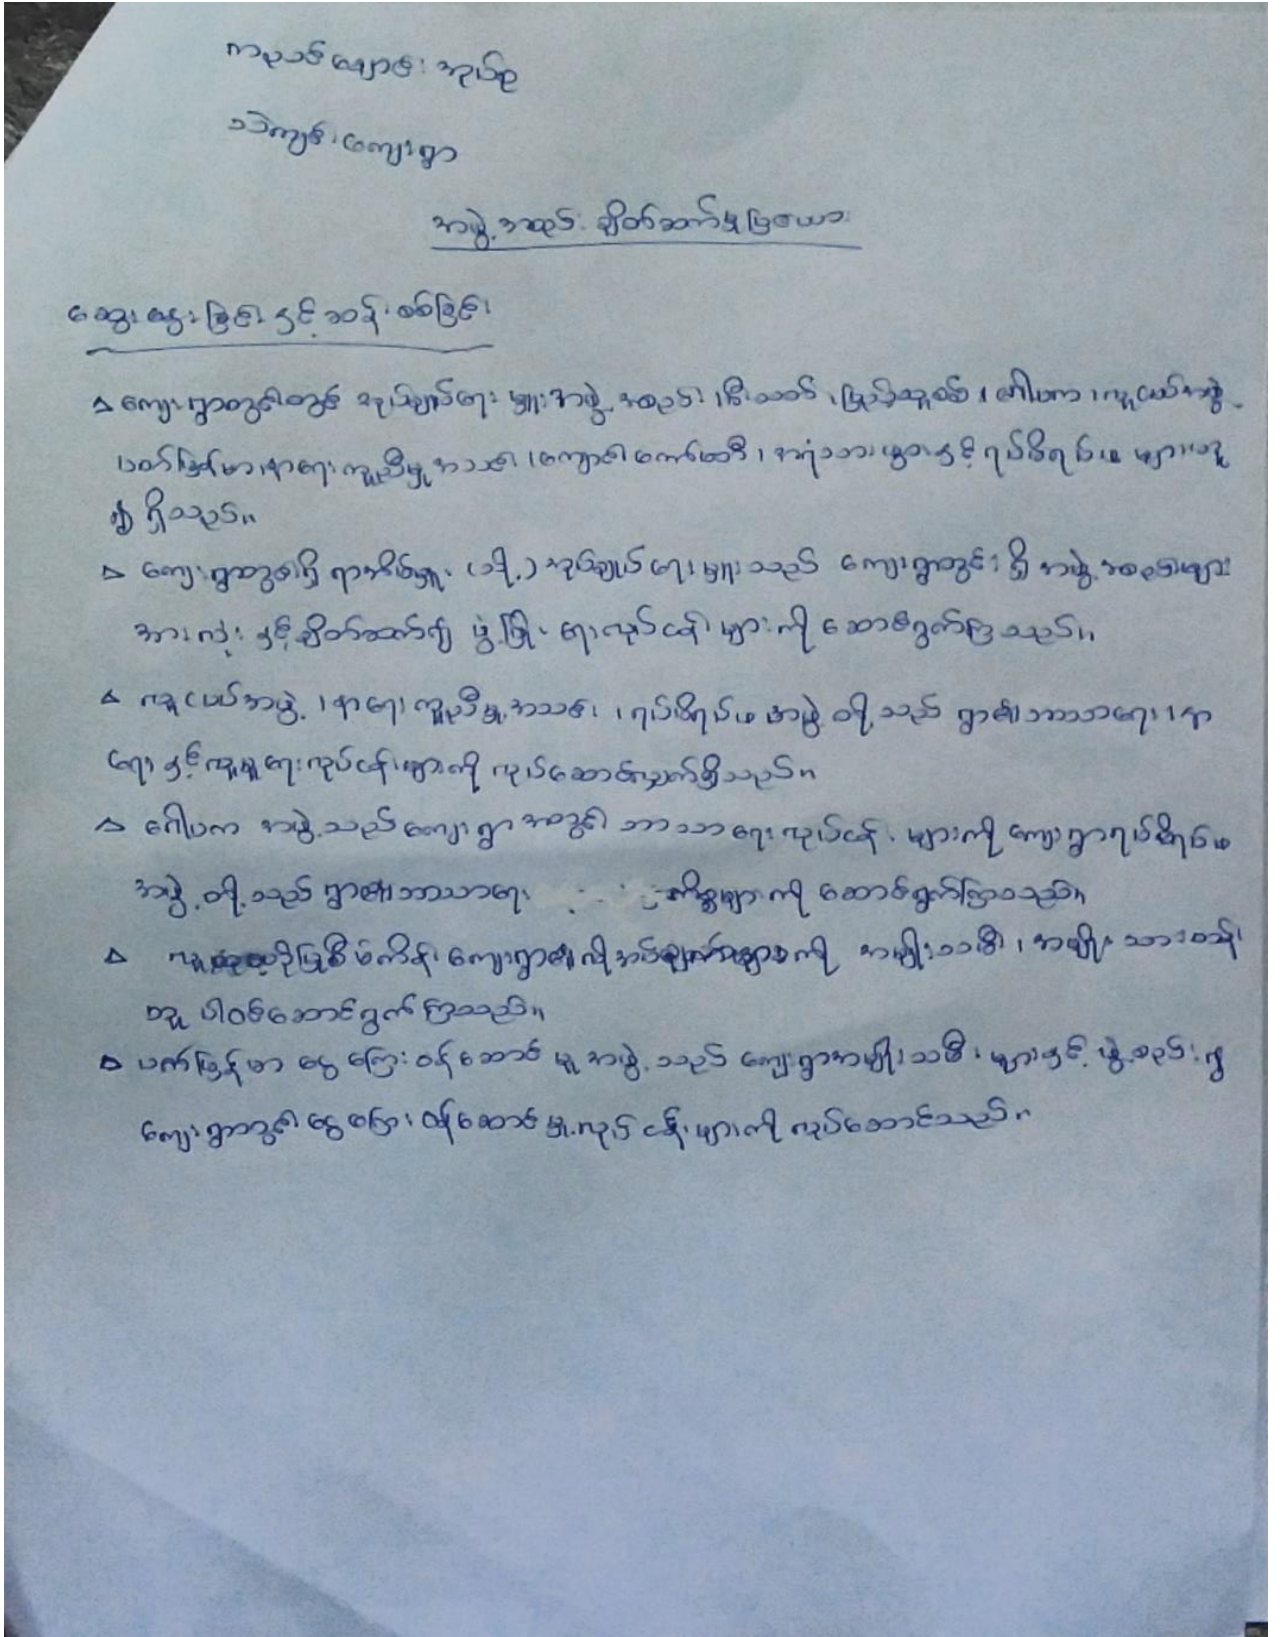 ကညင်ချောင်း အုပ်စု
သဲကျင်း ကျေးရွာ
အဖွဲ့အစည်း ချိတ်ဆက်မှုပြယော
ဆွေးနွေးခြင်းနှင့်ဆန်းစစ်ခြင်း
△ ကျေးရွာတွင်းတွင် အုပ်ချုပ်ရေးမှူးအဖွဲ့အစည်း၊ မီးသတ်၊ ပြည်သူ့စစ်၊ ဂေါပက၊ လူငယ်အဖွဲ့
ပတ်မြန်မာ၊ နာရေးကူညီမှုအသင်း၊ ကျောင်းကော်မတီ၊ အရံသားဖွားနှင့် ရပ်မိရပ်ဖများဟူ
၍ ရှိသည်။
△ ကျေးရွာတွင်းရှိ ရာအိမ်မှူး (သို့) အုပ်ချုပ်ရေးမှူးသည် ကျေးရွာတွင်းရှိ အဖွဲ့အစည်းများ
အားလုံးနှင့်ချိတ်ဆက်၍ ဖွံ့ဖြိုးရေးလုပ်ငန်းများကို ဆောင်ရွက်ကြသည်။
△ လူငယ်အဖွဲ့၊ နာရေးကူညီမှုအသင်း၊ ရပ်မိရပ်ဖအဖွဲ့တို့သည် ရွာ၏ဘာသာရေး၊ နာ
ရေးနှင့်လူမှုရေးလုပ်ငန်းများကို လုပ်ဆောင်လျှက်ရှိသည်။
△ ဂေါပက အဖွဲ့သည်ကျေးရွာအတွင်း ဘာသာရေးလုပ်ငန်းများကို ကျေးရွာရပ်မိရပ်ဖ
အဖွဲ့တို့သည် ရွာ၏ဘာသာရေး ကိစ္စများကို ဆောင်ရွက်ကြသည်။
△ ကျေးရွာ၏လိုအပ်ချက်များကို အမျိုးသမီး၊ အမျိုးသားတန်း
တူ ပါဝင်ဆောင်ရွက်ကြသည်။
△ ပတ်မြန်မာ ငွေကြေးဝန်ဆောင်မှုအဖွဲ့သည် ကျေးရွာအမျိုးသမီးများနှင့် ဖွဲ့စည်း၍
ကျေးရွာတွင်း ငွေကြေးဝန်ဆောင်မှုလုပ်ငန်းများကို လုပ်ဆောင်သည်။